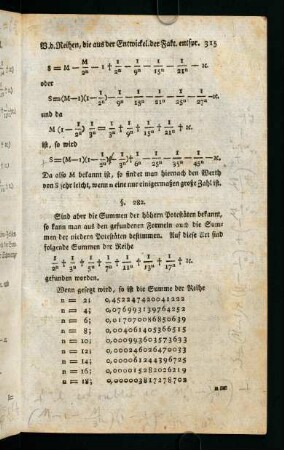 V. d. Reihen, die aus der Entwickel. der Fakt. entspr. 315
S = M − M/2ⁿ − 1 † 1/2ⁿ − 1/9ⁿ − 1/15ⁿ − 1/21ⁿ − ꝛc.
oder
S = (M−1)(1 − 1/2ⁿ) − 1/9ⁿ − 1/15ⁿ − 1/21ⁿ − 1/25ⁿ − 1/27ⁿ
und da
ist, so wird
Da also M bekannt ist, so findet man hiernach den Werth
von S sehr leicht, wenn n eine nur einigermaßen große Zahl ist.
§. 282.
Sind aber die Summen der höhern Potestäten bekannt,
so kann man aus den gefundenen Formeln auch die Sum-
men der niedern Potestäten bestimmen. Auf diese Art sind
folgende Summen der Reihe
1/2ⁿ † 1/3ⁿ † 1/5ⁿ † 1/7ⁿ † 1/11ⁿ † 1/13ⁿ † 1/17ⁿ † ꝛc.
gefunden worden.
Wenn gesetzt wird, so ist die Summe der Reihe
n = 2; 0,452247420041222
n = 4; 0,076993139764252
n = 6; 0,017070086850639
n = 8; 0,004061405366515
n = 10; 0,000993603573633
n = 12; 0,000246026470033
n = 14; 0,000061244396725
n = 16; 0,000015282026219
n = 18; 0,000003817278702